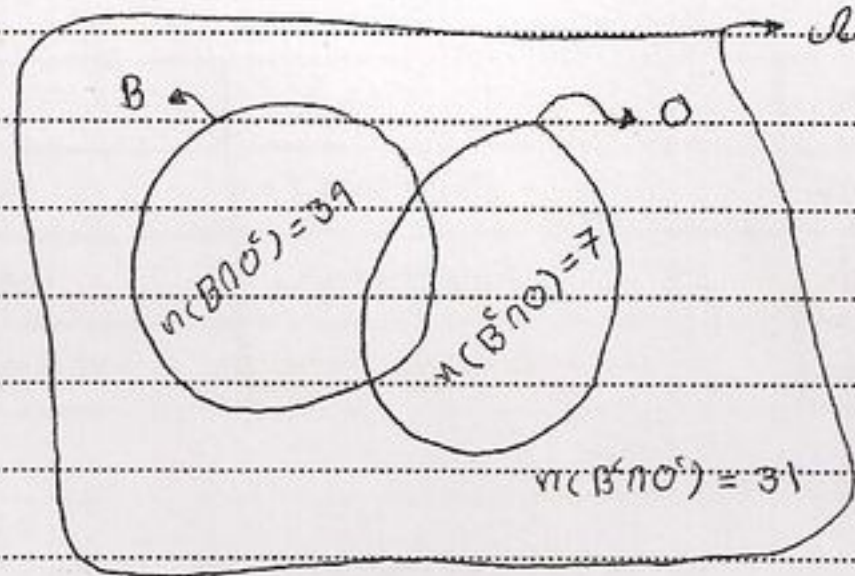 Ω
B
O
n(B∩Oᶜ) = 39
n(Bᶜ∩O) = 7
n(Bᶜ∩Oᶜ) = 31